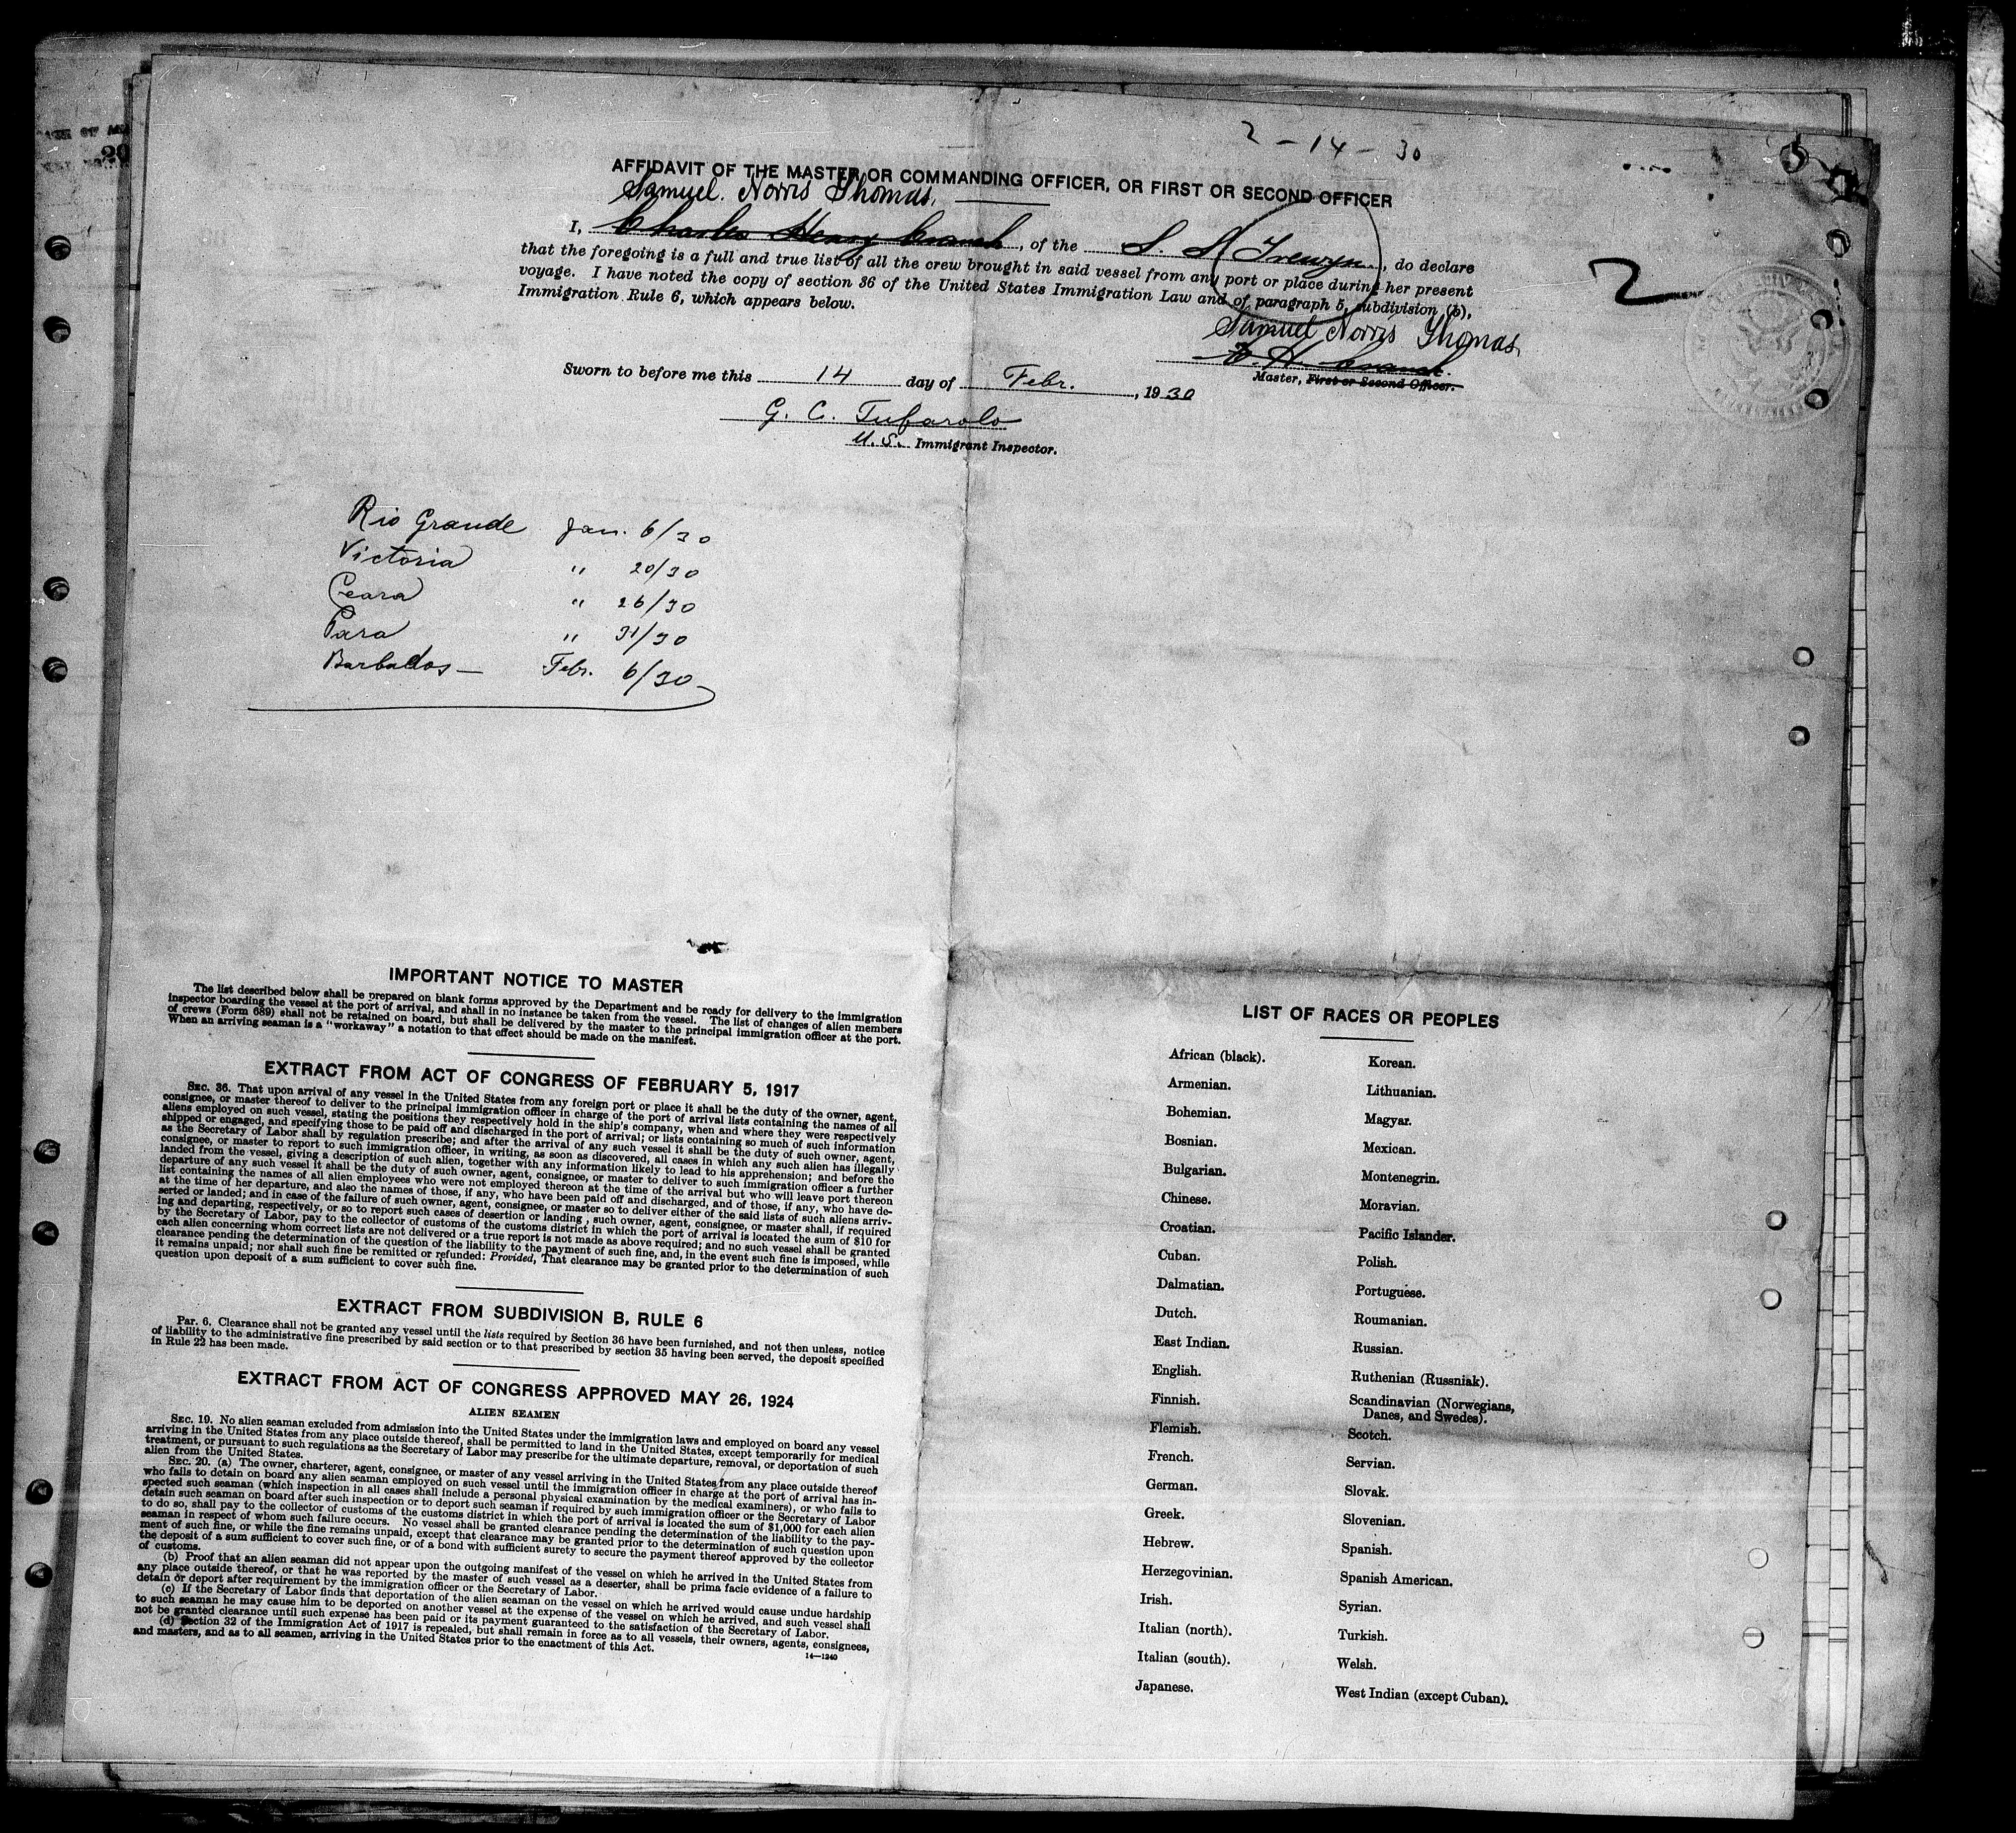 2 - 14 - 30
AFFIDAVIT OF THE MASTER OR COMMANDING OFFICER, OR FIRST OR SECOND OFFICER
Samuel. Norris Thomas.
I, Charles Henry , of the S. S. Trewyn , do declare
that the foregoing is a full and true list of all the crew brought in said vessel from any port or place during her present
voyage. I have noted the copy of section 36 of the United States Immigration Law and of paragraph 5, subdivision (b),
Immigration Rule 6, which appears below.
2
Samuel Norris Thomas.
Master, First or Second Officer.
Sworn to before me this 14 day of Febr. , 1930
G. C. Tufarolo
U.S. Immigrant Inspector.
Rio Grande Jan. 6/30
Victoria " 20/30
Ceara " 26/30
Para " 31/30
Barbados — Febr. 6/30
IMPORTANT NOTICE TO MASTER
The list described below shall be prepared on blank forms approved by the Department and be ready for delivery to the immigration
inspector boarding the vessel at the port of arrival, and shall in no instance be taken from the vessel. The list of changes of alien members
of crews (Form 689) shall not be retained on board, but shall be delivered by the master to the principal immigration officer at the port.
When an arriving seaman is a "workaway" a notation to that effect should be made on the manifest.
EXTRACT FROM ACT OF CONGRESS OF FEBRUARY 5, 1917
SEC. 36. That upon arrival of any vessel in the United States from any foreign port or place it shall be the duty of the owner, agent,
consignee, or master thereof to deliver to the principal immigration officer in charge of the port of arrival lists containing the names of all
aliens employed on such vessel, stating the positions they respectively hold in the ship's company, when and where they were respectively
shipped or engaged, and specifying those to be paid off and discharged in the port of arrival; or lists containing so much of such information
as the Secretary of Labor shall by regulation prescribe; and after the arrival of any such vessel it shall be the duty of such owner, agent,
consignee, or master to report to such immigration officer, in writing, as soon as discovered, all cases in which any such alien has illegally
landed from the vessel, giving a description of such alien, together with any information likely to lead to his apprehension; and before the
departure of any such vessel it shall be the duty of such owner, agent, consignee, or master to deliver to such immigration officer a further
list containing the names of all alien employees who were not employed thereon at the time of the arrival but who will leave port thereon
at the time of her departure, and also the names of those, if any, who have been paid off and discharged, and of those, if any, who have de-
serted or landed; and in case of the failure of such owner, agent, consignee, or master so to deliver either of the said lists of such aliens arriv-
ing and departing, respectively, or so to report such cases of desertion or landing , such owner, agent, consignee, or master shall, if required
by the Secretary of Labor, pay to the collector of customs of the customs district in which the port of arrival is located the sum of $10 for
each alien concerning whom correct lists are not delivered or a true report is not made as above required; and no such vessel shall be granted
clearance pending the determination of the question of the liability to the payment of such fine, and, in the event such fine is imposed, while
it remains unpaid; nor shall such fine be remitted or refunded: Provided, That clearance may be granted prior to the determination of such
question upon deposit of a sum sufficient to cover such fine.
EXTRACT FROM SUBDIVISION B, RULE 6
Par. 6. Clearance shall not be granted any vessel until the lists required by Section 36 have been furnished, and not then unless, notice
of liability to the administrative fine prescribed by said section or to that prescribed by section 35 having been served, the deposit specified
in Rule 22 has been made.
EXTRACT FROM ACT OF CONGRESS APPROVED MAY 26, 1924
ALIEN SEAMEN
SEC. 19. No alien seaman excluded from admission into the United States under the immigration laws and employed on board any vessel
arriving in the United States from any place outside thereof, shall be permitted to land in the United States, except temporarily for medical
treatment, or pursuant to such regulations as the Secretary of Labor may prescribe for the ultimate departure, removal, or deportation of such
alien from the United States.
SEC. 20. (a) The owner, charterer, agent, consignee, or master of any vessel arriving in the United States from any place outside thereof
who fails to detain on board any alien seaman employed on such vessel until the immigration officer in charge at the port of arrival has in-
spected such seaman (which inspection in all cases shall include a personal physical examination by the medical examiners), or who fails to
detain such seaman on board after such inspection or to deport such seaman if required by such immigration officer or the Secretary of Labor
to do so, shall pay to the collector of customs of the customs district in which the port of arrival is located the sum of $1,000 for each alien
seaman in respect of whom such failure occurs. No vessel shall be granted clearance pending the determination of the liability to the pay-
ment of such fine, or while the fine remains unpaid, except that clearance may be granted prior to the determination of such question upon
the deposit of a sum sufficient to cover such fine, or of a bond with sufficient surety to secure the payment thereof approved by the collector
of customs.
(b) Proof that an alien seaman did not appear upon the outgoing manifest of the vessel on which he arrived in the United States from
any place outside thereof, or that he was reported by the master of such vessel as a deserter, shall be prima facie evidence of a failure to
detain or deport after requirement by the immigration officer or the Secretary of Labor.
(c) If the Secretary of Labor finds that deportation of the alien seaman on the vessel on which he arrived would cause undue hardship
to such seaman he may cause him to be deported on another vessel at the expense of the vessel on which he arrived, and such vessel shall
not be granted clearance until such expense has been paid or its payment guaranteed to the satisfaction of the Secretary of Labor.
(d) Section 32 of the Immigration Act of 1917 is repealed, but shall remain in force as to all vessels, their owners, agents, consignees,
and masters, and as to all seamen, arriving in the United States prior to the enactment of this Act.
14—1240
LIST OF RACES OR PEOPLES
African (black).
Armenian.
Bohemian.
Bosnian.
Bulgarian.
Chinese.
Croatian.
Cuban.
Dalmatian.
Dutch.
East Indian.
English.
Finnish.
Flemish.
French.
German.
Greek.
Hebrew.
Herzegovinian.
Irish.
Italian (north).
Italian (south).
Japanese.
Korean.
Lithuanian.
Magyar.
Mexican.
Montenegrin.
Moravian.
Pacific Islander.
Polish.
Portuguese.
Roumanian.
Russian.
Ruthenian (Russniak).
Scandinavian (Norwegians,
Danes, and Swedes).
Scotch.
Servian.
Slovak.
Slovenian.
Spanish.
Spanish American.
Syrian.
Turkish.
Welsh.
West Indian (except Cuban).